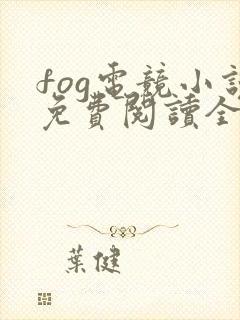 fog電競小
免費閱讀全
葉健